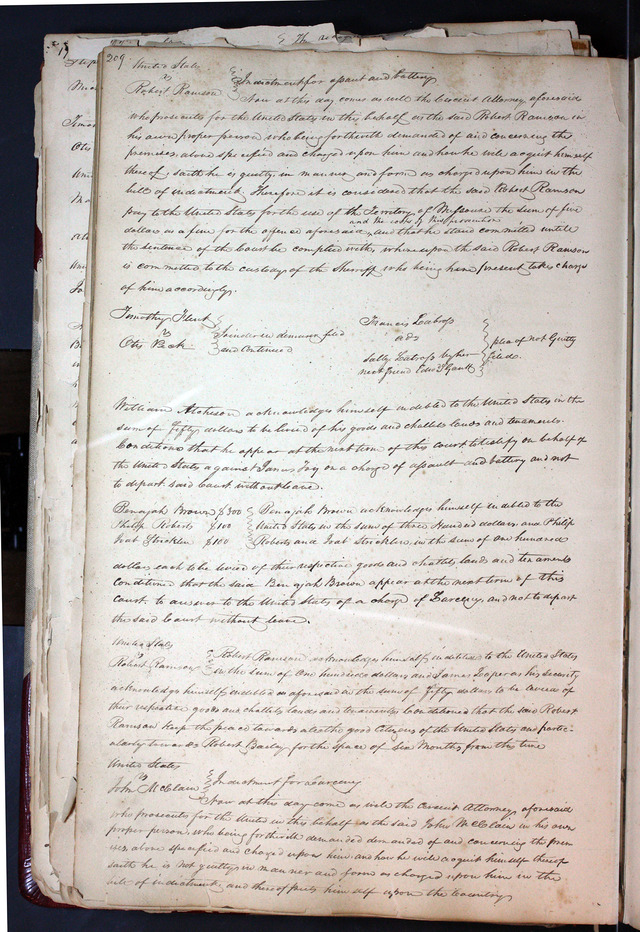 209
United States
vs
Robert Ramson
Indictment for assault and battery
Now at this day comes as well the Circuit Attorney aforesaid
who prosecutes for the United States in this behalf as the said Robert Ramson in
his own proper person, who being forthwith demanded of and concerning the
premises, above specified and charged upon him and how he will acquit himself
thereof, saith he is guilty, in manner and form as charged upon him in the
bill of indictment. Therefore it is considered that the said Robert Ramson
pay to the United States for the use of the Territory of Missouri the sum of five
and the costs of this prosecution
dollars as a fine for the offense aforesaid, and that he stand committed until
the sentence of the Court be complied with, whereupon the said Robert Ramson
is committed to the custody of the Sherriff who being here present takes charge
of him accordingly.
Timothy Flint
vs
Otis Peck
Joinder in demurrer filed
and continued
Francis Labross
ads
Sally Labross by her
next friend Edwd Gantt
plea of not Guilty
filed.
William Atcheson acknowledges himself indebted to the United States in the
sum of Fifty dollars to be levied of his goods and chattels lands and tenements.
Conditioned that he appear at the next term of this court to testify on behalf of
the United States against James Jay on a charge of assault and battery and not
to depart said Court without leave.
Benajah Brown $300
Philip Roberts $100
$100
Benajah Brown acknowledges himself indebted to the
United States in the sum of three hundred dollars and Philip
Roberts and in the sum of one hundred
dollars each to be levied of their respective goods and chattels, lands and tenements
Conditioned that the said Benajah Brown appear at the next term of this
Court. to answer to the United States of a charge of Larceny, and not to depart
the said Court without leave.
United States
vs
Robert Ramson
Robert Ramson acknowledges himself indebted to the United States
in the sum of one hundred dollars and James as his security
acknowledges himself indebted as aforesaid in the sum of Fifty dollars to be levied of
their respective goods and chattels lands and tenements Conditioned that the said Robert
Ramson keep the peace towards all the good Citizens of the United States and partic-
ularly towards Robert for the space of Six Months from this time
United States
vs
John McClain
Indictment for Larceny
Now at this day come as well the Circuit Attorney, aforesaid
who prosecutes for the United in this behalf as the said John McClain in his own
proper person, who being forthwith demanded demanded of and concerning the prem
ises, above specified and charged upon him, and how he will acquit himself thereof
saith he is not guilty in manner and form as charged upon him in the
bill of indictment, and thereof puts him self upon the Country